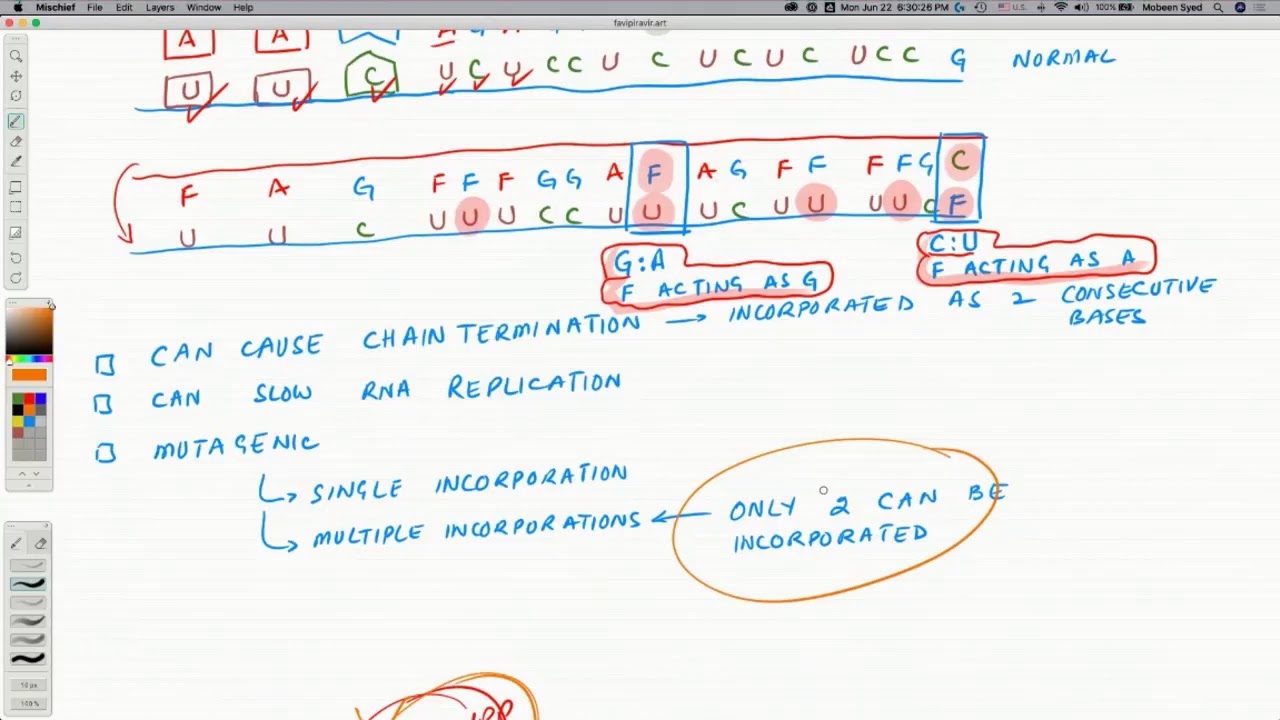 Mischief File Edit Layers Window Help 100% Mon Jun 22 6:30:26 PM U.S. 100% Mobeen Syed
favipiravir.art
A A A
U U C U C U C C U C U C U C U C C G NORMAL
F A G F F F G G A F A G F F F F G C
U U C U U U C C U U U C U U U U C F
G:A C:U
F ACTING AS G F ACTING AS A
CAN CAUSE CHAIN TERMINATION → INCORPORATED AS 2 CONSECUTIVE BASES
CAN SLOW RNA REPLICATION
MUTAGENIC
SINGLE INCORPORATION
MULTIPLE INCORPORATIONS ← ONLY 2 CAN BE
INCORPORATED
100%